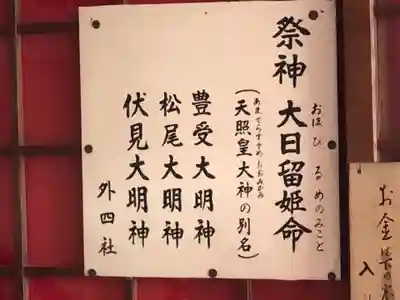 祭神 大日留姫命
おほひるめのみこと
(天照皇大神の別名)
あまてらすすめおおみかみ
豊受大明神
松尾大明神
伏見大明神
外四社
お金
入